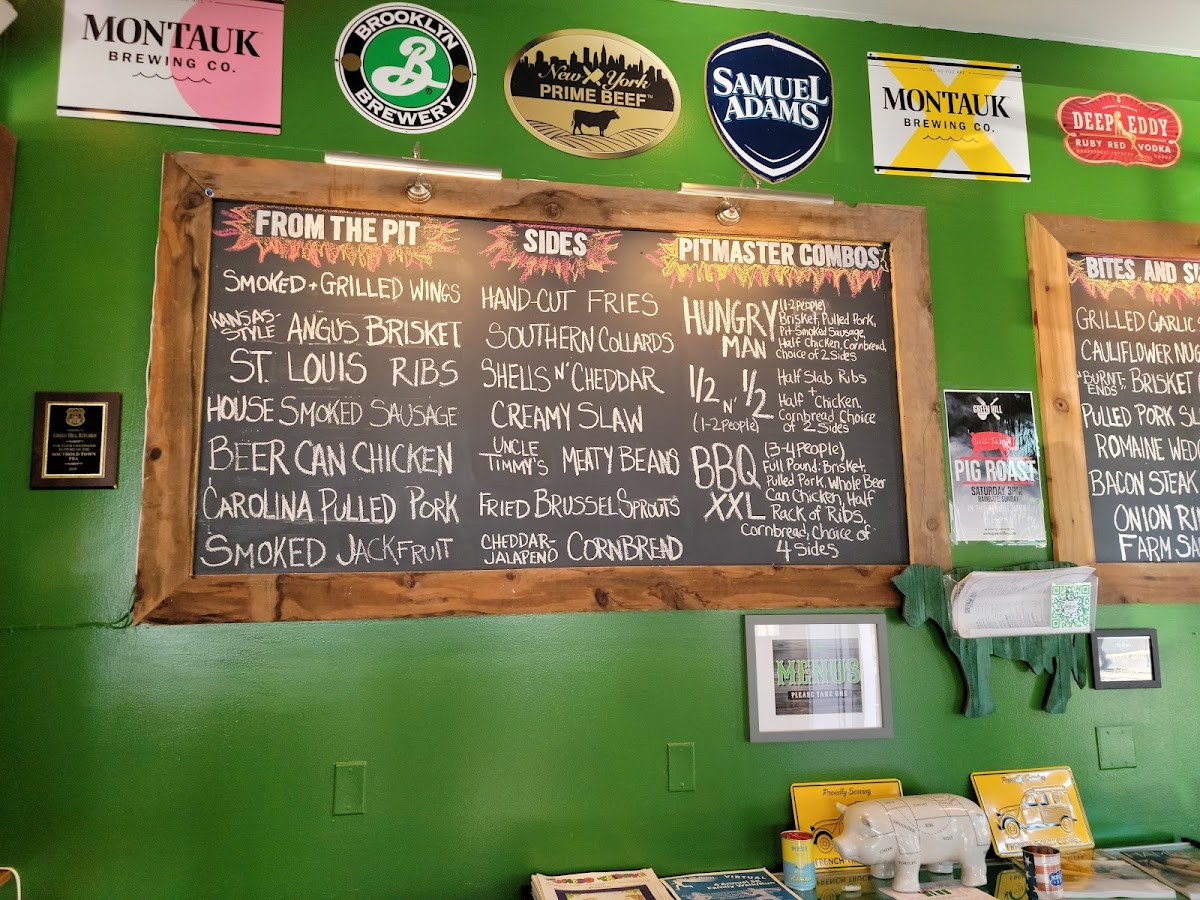 MONTAUK
BREWING CO.
BROOKLYN
B
BREWERY
New York
PRIME BEEF™
SAMUEL
ADAMS
MONTAUK
BREWING CO.
DEEP EDDY
RUBY RED VODKA
FROM THE PIT
SMOKED + GRILLED WINGS
KANSAS-
STYLE ANGUS BRISKET
ST. LOUIS RIBS
HOUSE SMOKED SAUSAGE
BEER CAN CHICKEN
CAROLINA PULLED PORK
SMOKED JACKFRUIT
SIDES
HAND-CUT FRIES
SOUTHERN COLLARDS
SHELLS N' CHEDDAR
CREAMY SLAW
UNCLE
TIMMY'S MEATY BEANS
FRIED BRUSSEL SPROUTS
CHEDDAR-
JALAPEÑO CORNBREAD
PITMASTER COMBOS
HUNGRY
MAN
(1-2 people)
Brisket, Pulled Pork,
Pit Smoked Sausage,
Half Chicken, Cornbread,
choice of 2 Sides
1/2 N' 1/2
(1-2 People)
Half Slab Ribs
+
Half Chicken,
Cornbread Choice
of 2 Sides
BBQ
XXL
(3-4 People)
Full Pound: Brisket,
Pulled Pork, Whole Beer
Can Chicken, Half
Rack of Ribs,
Cornbread, Choice of
4 Sides
BITES AND
GRILLED GARLIC
CAULIFLOWER
"BURNT
ENDS" BRISKET
PULLED PORK
ROMAINE
BACON STEAK
ONION
FARM
GREEN HILL KITCHEN
SOUTHOLD TOWN
PBA
GREEN HILL
PIG ROAST
SATURDAY
MENUS
PLEASE TAKE ONE
Proudly Serving
Proudly Serving
FRENCH
VIRTUAL